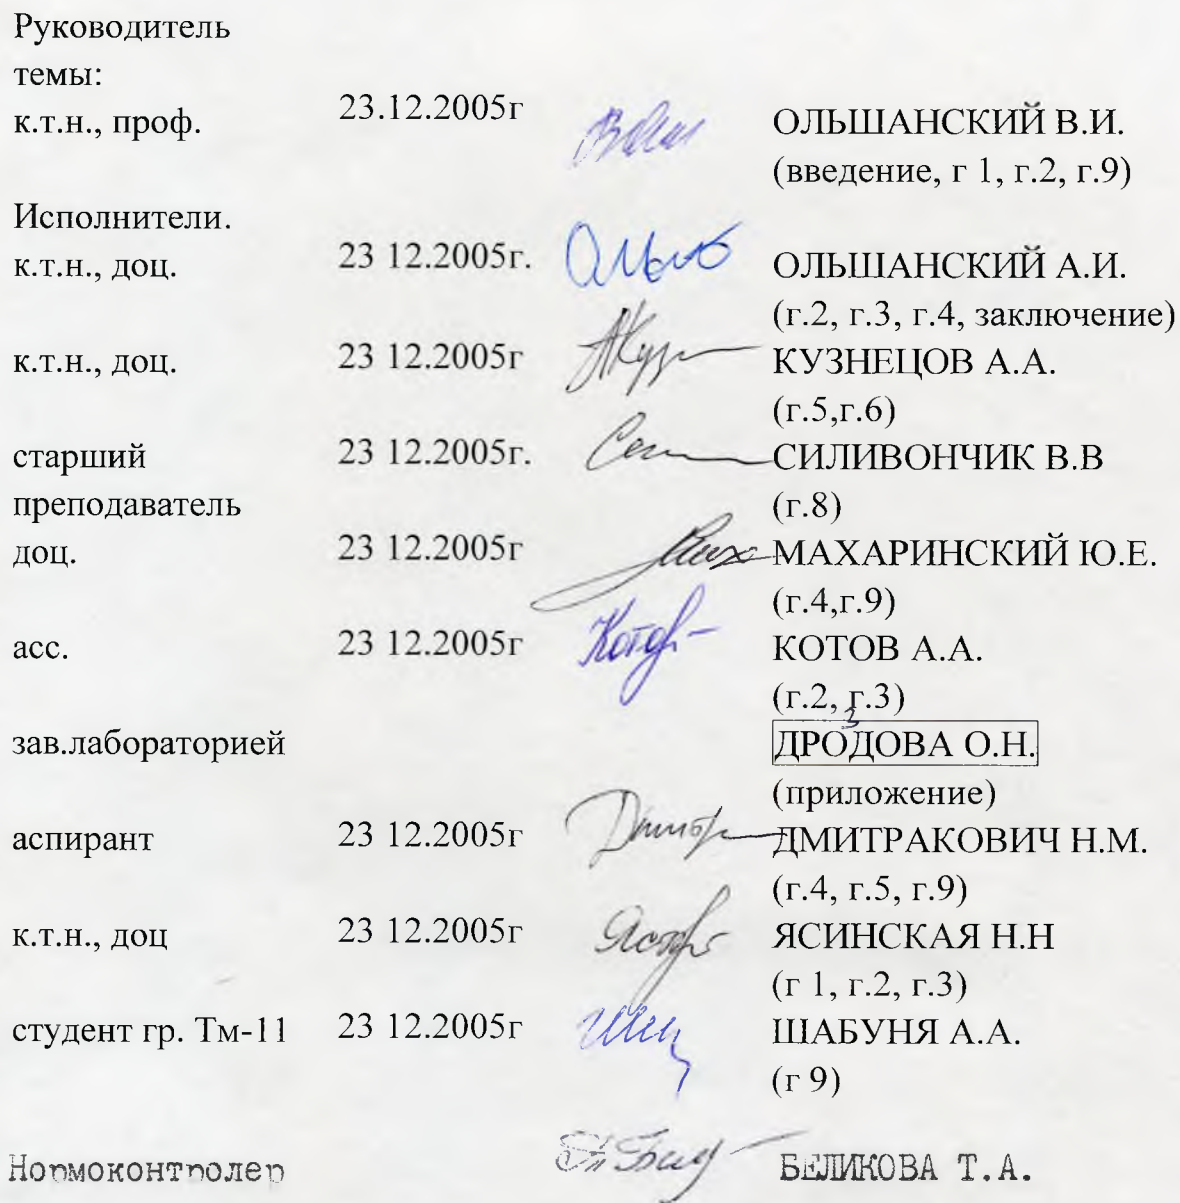 Руководитель
темы:
к.т.н., проф. 23.12.2005г ОЛЬШАНСКИЙ В.И.
(введение, г 1, г.2, г.9)
Исполнители.
к.т.н., доц. 23 12.2005г. ОЛЬШАНСКИЙ А.И.
(г.2, г.3, г.4, заключение)
к.т.н., доц. 23 12.2005г КУЗНЕЦОВ А.А.
(г.5,г.6)
старший 23 12.2005г. СИЛИВОНЧИК В.В
преподаватель (г.8)
доц. 23 12.2005г МАХАРИНСКИЙ Ю.Е.
(г.4,г.9)
асс. 23 12.2005г Котов КОТОВ А.А.
(г.2, г.3)
з
зав.лабораторией ДРОДОВА О.Н.
(приложение)
аспирант 23 12.2005г ДМИТРАКОВИЧ Н.М.
(г.4, г.5, г.9)
к.т.н., доц 23 12.2005г ЯСИНСКАЯ Н.Н
(г 1, г.2, г.3)
студент гр. Тм-11 23 12.2005г ШАБУНЯ А.А.
(г 9)
Нормоконтролер БЕЛИКОВА Т.А.